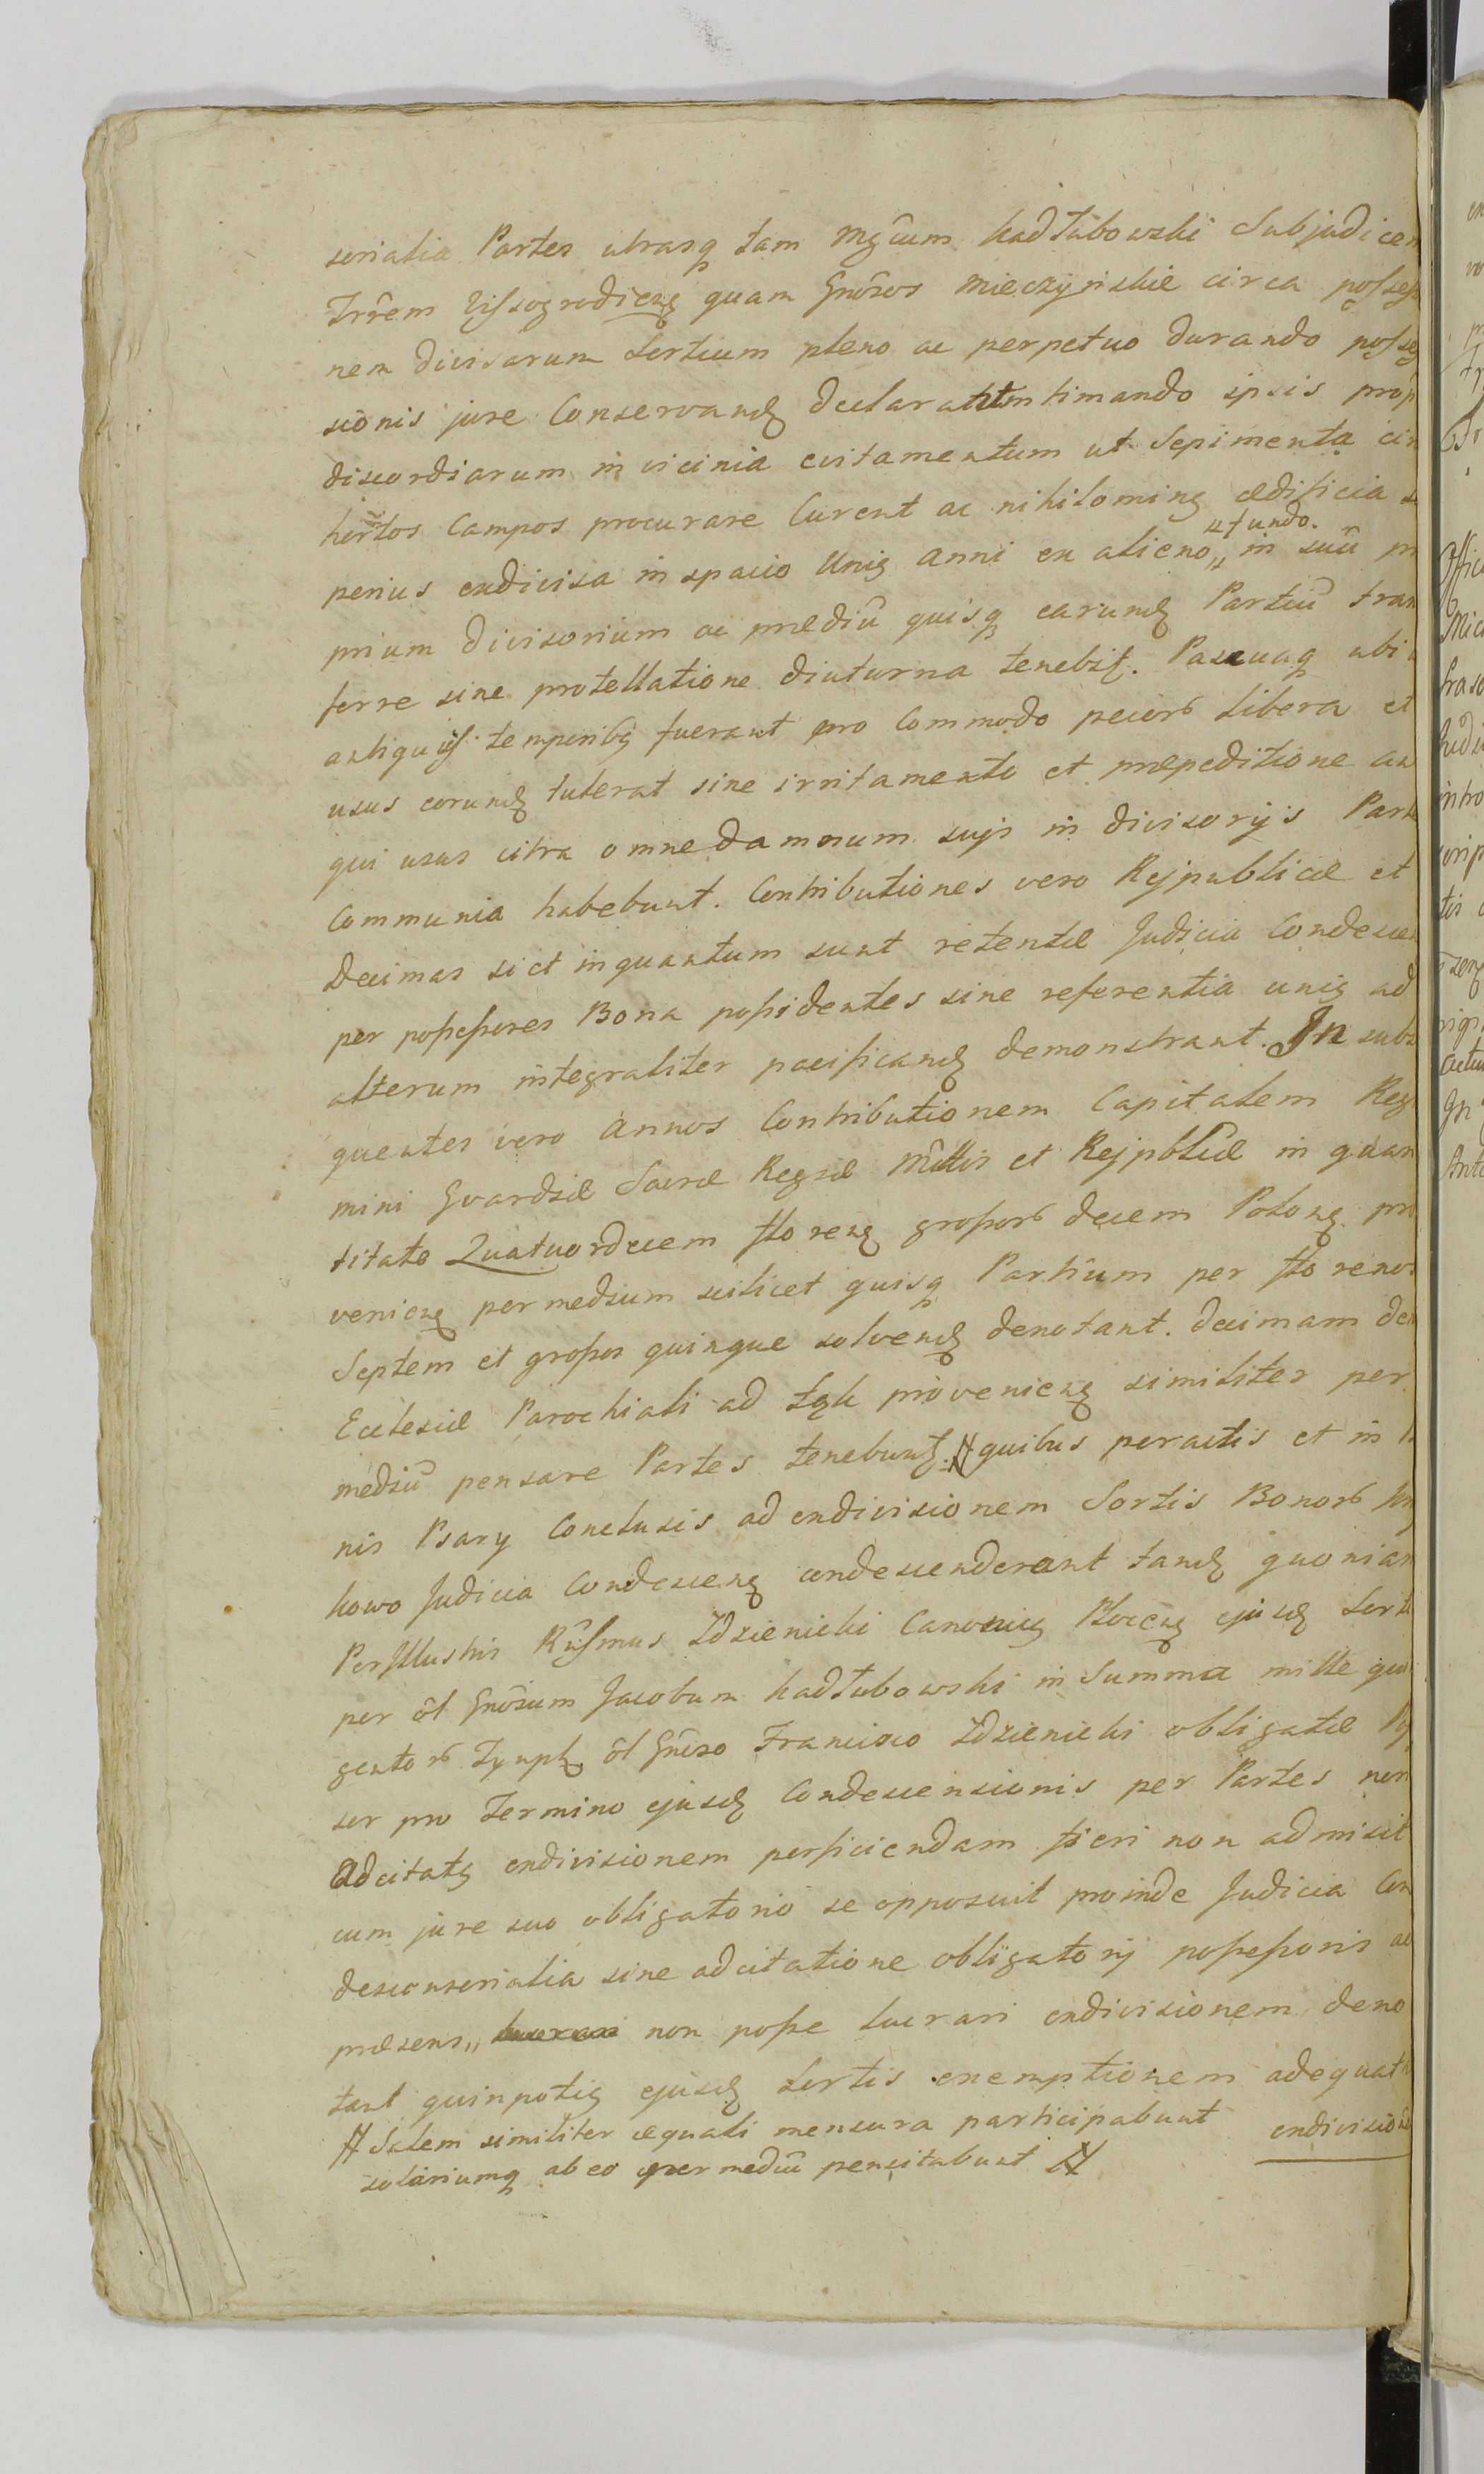 sorialia Partes utrasq tam Mgcum Kadłubowski Subjudicem
Trrēm Vissogrodicñ quam Gnōsos Mieczyńskie circa possess
nem divisarum Sortium pleno ac perpetuo durando posses
sionis jure Conservand declarant intimando ipsis prop
discordiarum in vicinia evitamentum ut Sepimenta cir
hortos Campos procurare Curent ac nihilominq ædificia
perius exdivisa in spacio Uniq Anni ex alieno „ in suū
„ fundo.
prium divisorium ac prædiū quisq earund Partiū tran
ferre sine protellatione diuturna tenebit. Pascuaq ubi
antiquis temporibq fuerant pro Commodo pecorƀ libera et
usus eorund tulerat sine irritamento et præpeditione
qui usus citra omne damnum sujs in divisorijs Part
Communia habebunt. Contributiones vero Rejpublicæ et
Decimas si et inquantum sunt retentæ Judicia Condescen
per possessores Bona possidentes sine referentia uniq ad
alterum integraliter pacificand demonstrant. In subs
quentes vero Annos Contributionem Capitalem Reg
mini Gvardiæ Sacræ Regiæ Mttis et Rejpbliæ in quan
titate Quatuordecem floreñ grossorƀ decem Poloñ pro
venieñ per medium scilicet quisq Partium per florenos
Septem et grossos quinque solvend denotant. Decimam
Ecclesiæ Parochiali ad provenieñ similiter per
mediū pensare Partes tenebunt. # quibus peractis et in
nis Psary Conclusis ad exdivisionem Sortis Bonorƀ
kowo Judicia Condesceñ condescenderant tand quoniam
PerIllustris Rnssmus Zdzienicki Canonicq Płoceñ ejusd Sort
per ol Gnōsum Jacobum Kadłubowski in Summa mille
gentorƀ Tynph ol Gnōso Francisco Zdzienicki obligatæ
sor pro Termino ejusd Condescensionis per Partes non
Adcitatq exdivisionem perficiendam fieri non admisit
cum jure suo obligatorio se opposuit proinde Judicia Con
descensorialia sine adcitatione obligatorij possessoris ac
præsens „ non posse lucrari exdivisionem deno
tant quinpotiq ejusd Sortis exemptionem adequat
exdivisio
# Salem similiter æquali mensura participabunt
solariumq ab eo per mediū pensitabunt #